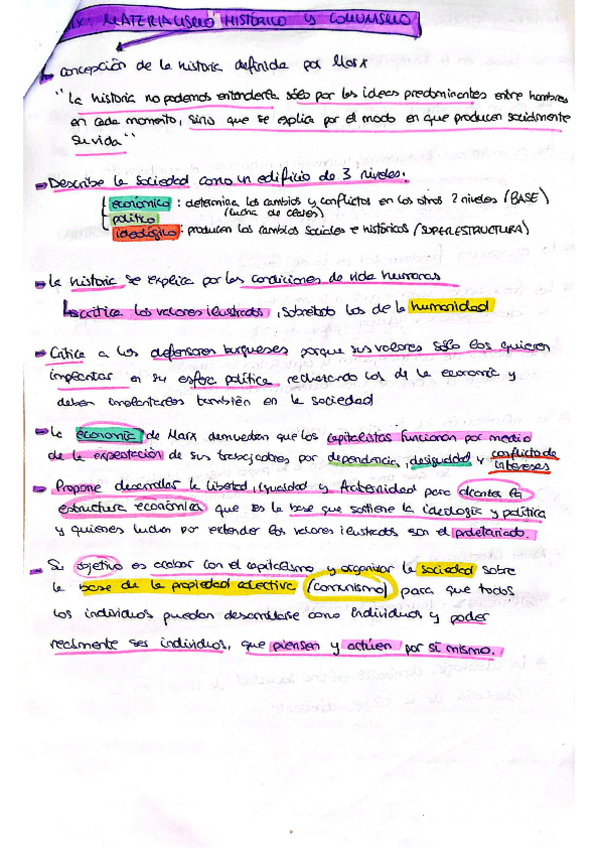 MATERIALISMO HISTÓRICO Y COMUNISMO
Concepción de la historia definida por Marx
"La historia no podemos entenderla sólo por las ideas predominantes entre hombres
en cada momento, sino que se explica por el modo en que producen socialmente
su vida"
Describe la sociedad como un edificio de 3 niveles:
económico: determina los cambios y conflictos en los otros 2 niveles (BASE)
político (lucha de clases)
ideológico: producen los cambios sociales e históricos (SUPERESTRUCTURA)
La historia se explica por las condiciones de vida humanas
critica los valores ilustrados, sobretodo los de la humanidad
Critica a los defensores burgueses porque sus valores sólo los quieren
implantar en su esfera política, rechazando los de la economía y
deben implantarlos también en la sociedad
La economía de Marx demuestran que los capitalistas funcionan por medio
de la explotación de sus trabajadores por dependencia, desigualdad y conflicto de
intereses
Propone desarrollar la libertad, igualdad y fraternidad para alcanzar la
estructura económica que es la base que sostiene la ideología y política
y quienes luchan por extender los valores ilustrados son el proletariado.
Su objetivo es acabar con el capitalismo y organizar la sociedad sobre
la base de la propiedad colectiva (comunismo) para que todos
los individuos puedan desarrollarse como individuos y poder
realmente ser individuos, que piensen y actúen por sí mismo.